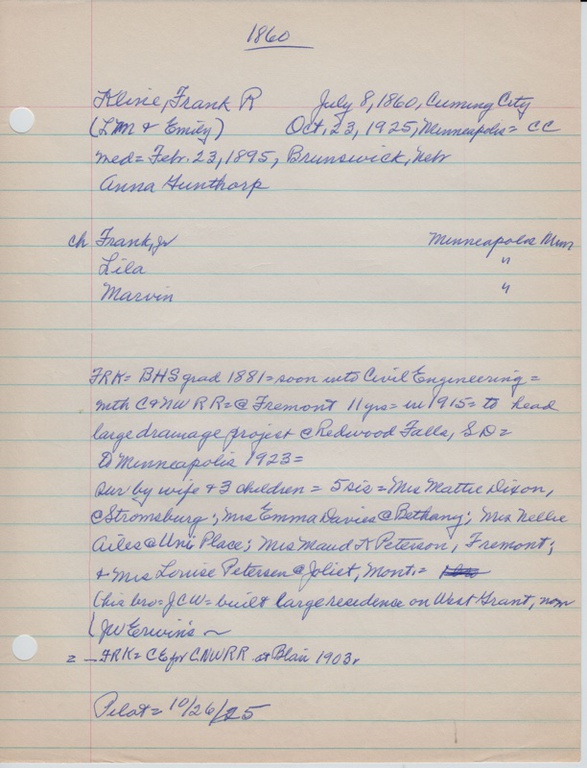 1860
Kline, Frank R July 8, 1860, Cuming City
(LM & Emily) Oct, 23, 1925, Minneapolis = CC
med = Febr. 23, 1895, Brunswick, Nebr
Anna Gunthorp
ch Frank, Jr Minneapolis Minn
Lila "
Marvin "
FRK = BHS grad 1881 = soon into Civil Engineering =
with C&NW RR = @ Fremont 11 yrs = in 1915 = to head
large drainage project @ Redwood Falls, SD =
To Minneapolis 1923 =
sur by wife & 3 children = 5 sis = Mrs Mattie Dixon,
@ Stromsburg; Mrs Emma Davies @ Bethany; Mrs Nellie
Ailes @ Uni Place; Mrs Maud K Peterson, Fremont;
& Mrs Louise Petersen @ Joliet, Mont. =
(his bro = JCW = built large residence on West Grant, now
(JW Erwin's ~
= - FRK = CE for CNWRR at Blair 1903.
Pilot = 10/26/25